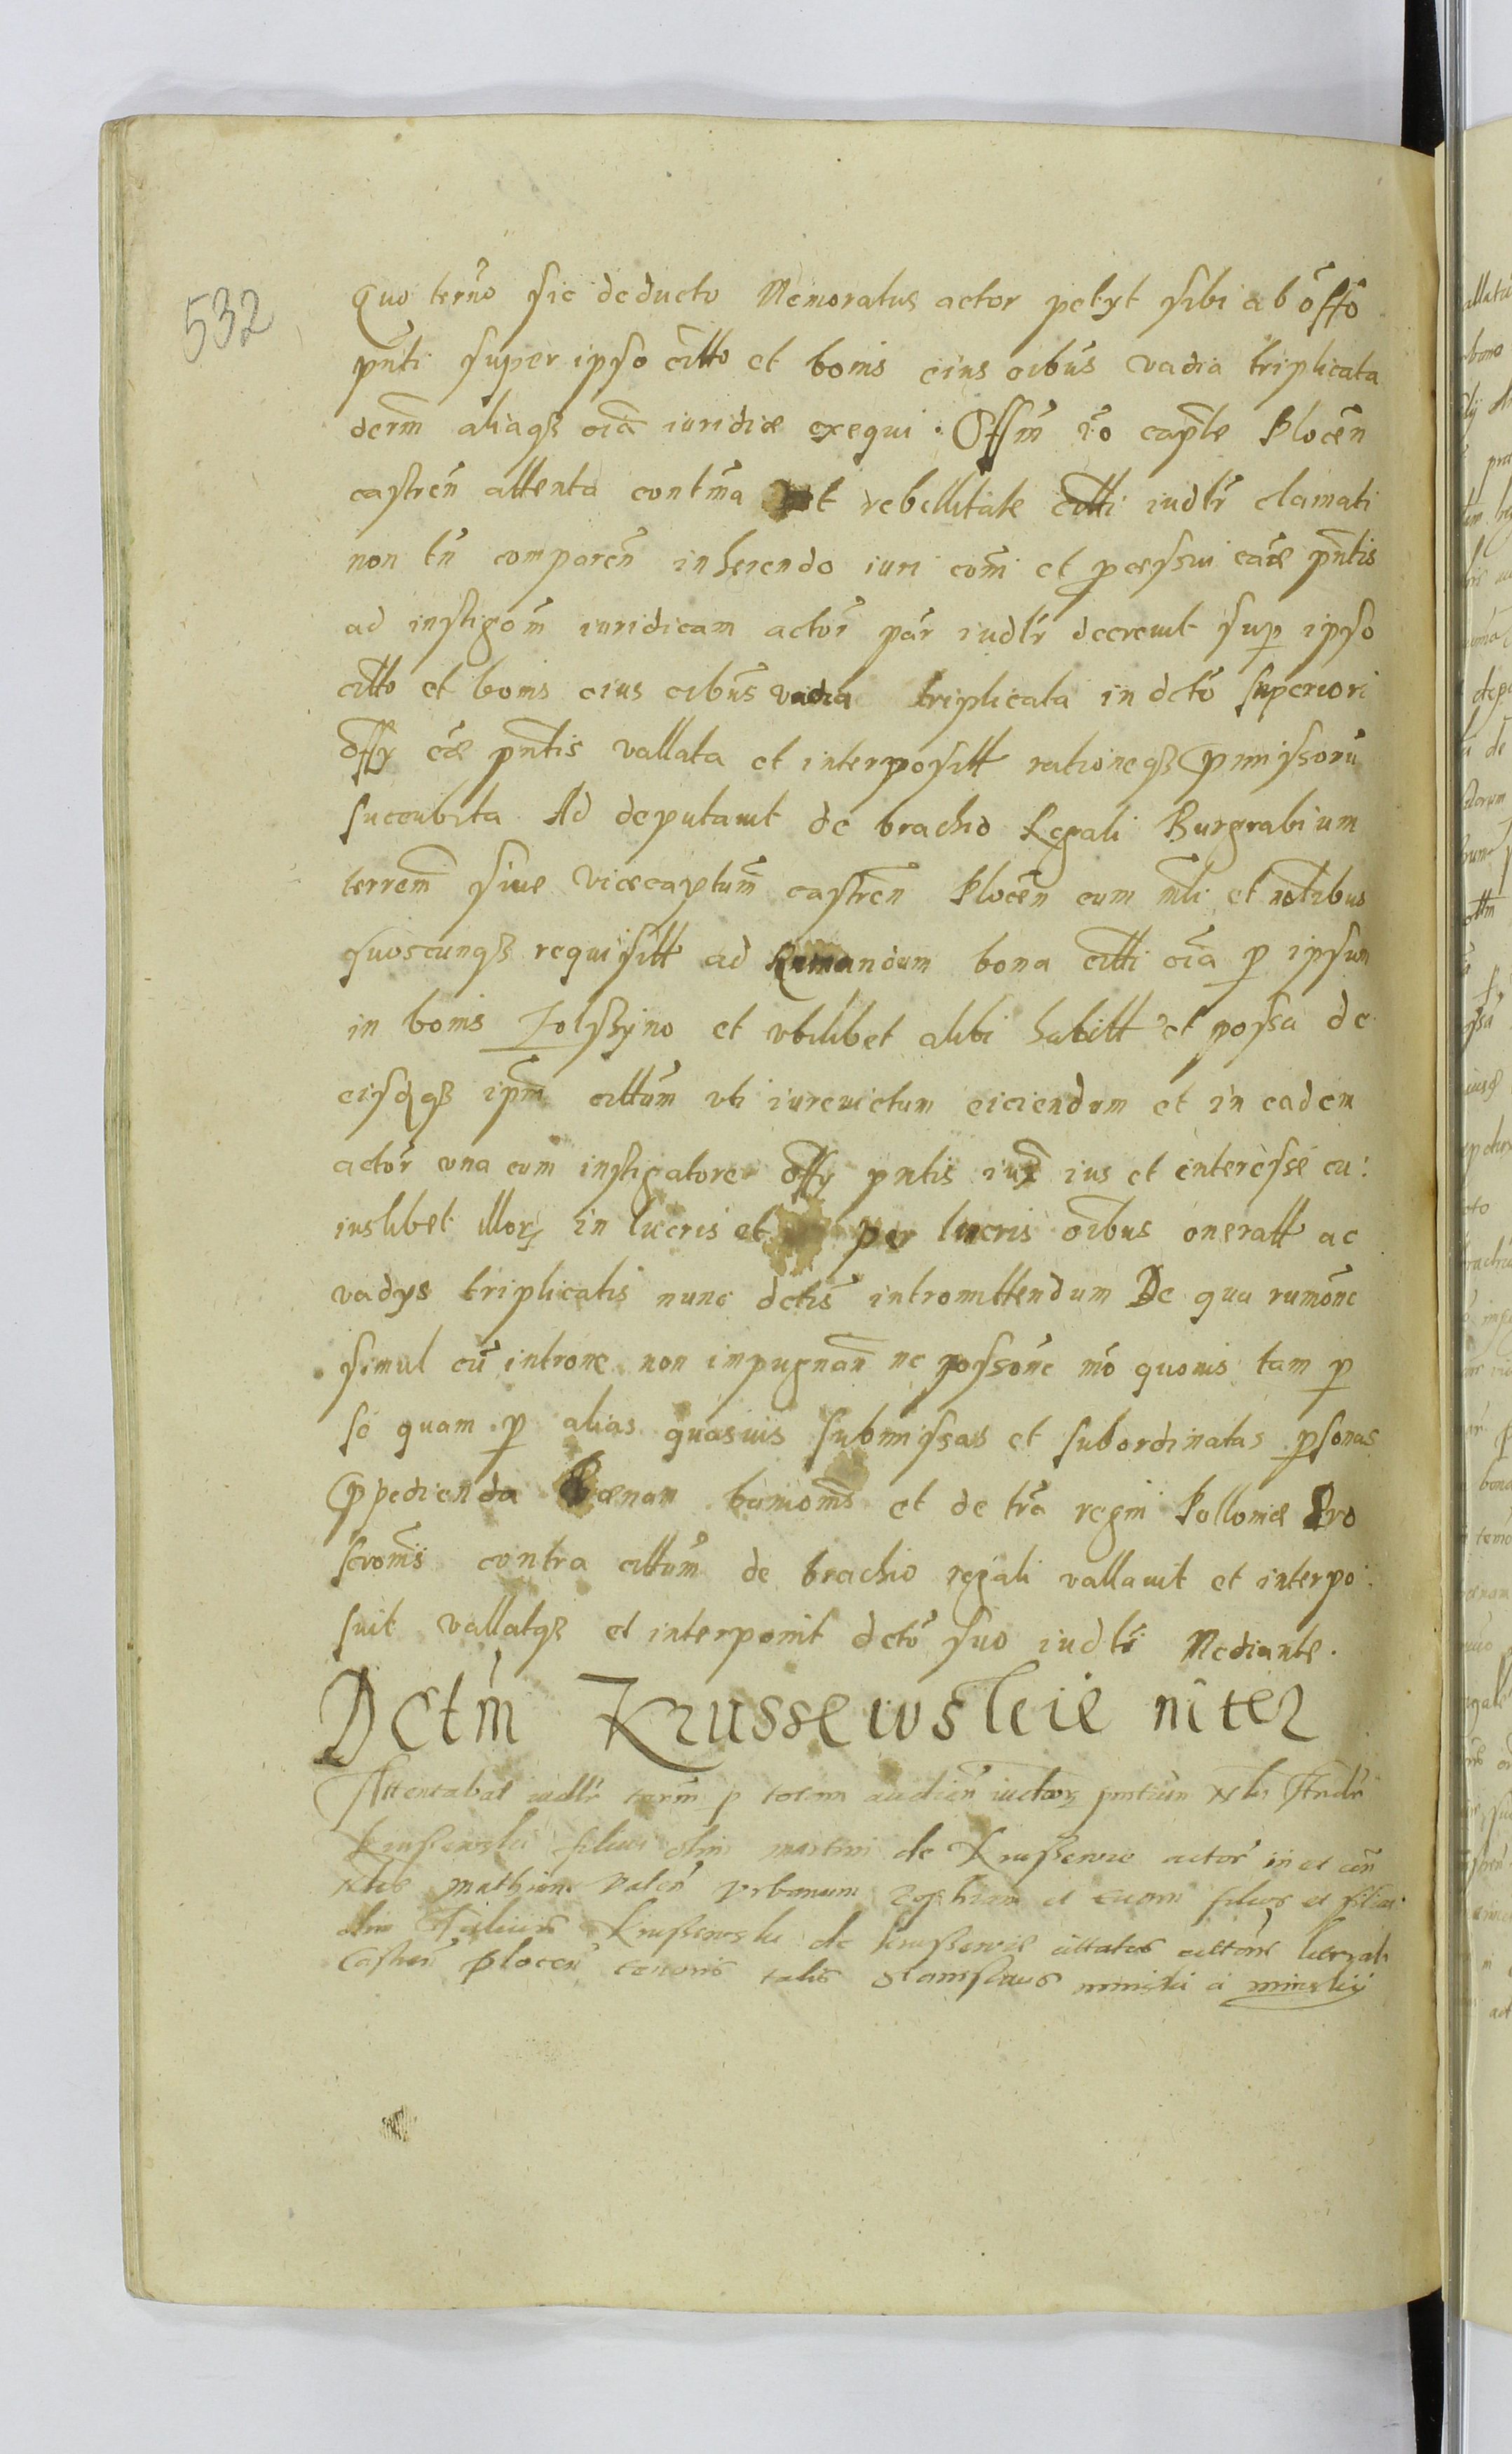 532
Quo terño sic deducto Memoratus actor petyt sibi ab offo
pñti super ipso citto et bonis eius oibus vadia triplicata
derm aliaqʒ oia iuridice exequi. Offm vo captle Plocen
castren attenta contma et rebellitate citti iudlr clamati
non tn comparen inherendo iuri comi et pcessui caae pntis
ad instigom iuridicam actor par iudlr decrevit sup ipso
citto et bonis eius oibus vadia triplicata in dcto superiori
offy cae pntis vallata et interposit rationeqʒ pmissoru
succubita Ad deputavit de brachio Regali Burgrabium
terrem sive vicecaptum castren Plocen cum mli et nolibus
quoscunqʒ requisitt ad Rumandum bona citti oia p ipsum
in bonis Zolssyno et ubilibet alibi habitt et possa de
eisdqʒ ipm cittum uti iurevictum eiciendum et in eadem
actor una cum instigatore offy pntis iux ius et interesse cu:
iuslibet illorʒ in lucris et per lucris oibus oneratt ac
vadys triplicatis nunc dctis intromittendum De qua rumone
simul cu introne non impugnan nc possone mo quovis tam p
se quam p alias quasvis submissas et subordinatas psonas
ppedienda Pœnam banioms et de tra regni Polloniæ Pro
scroms contra cittum de brachio regali vallavit et interpo:
suit vallatqʒ et interponit dcto suo iudlr Mediante.
Dctm Krussewskie niter
Attentabat iudlr term p totam audien iudorʒ pntium Nlis Andr
Krussewski filius olim martini de Krussewie actor in et con
Nles mathiam Valen Urbanum Zophiam et Evam filios et filias
olim Krussewski de Krussewie cittatos cittone litterali
Castren Plocen tenoris talis Stanislaus minski a minskij